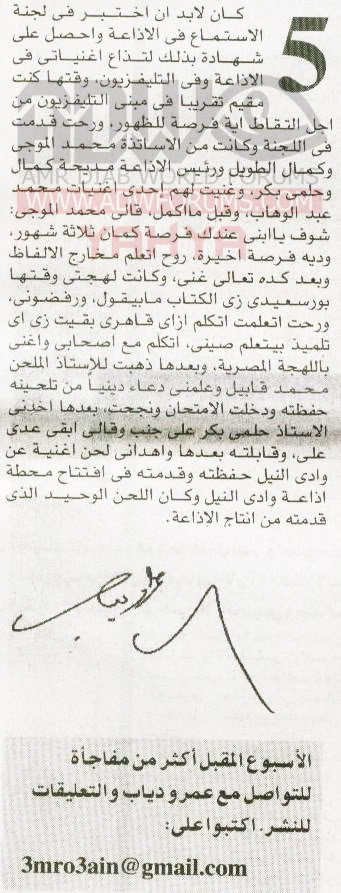 5
كان لابد ان اختبر فى لجنة
الاستماع فى الاذاعة واحصل على
شهادة بذلك لتذاع اغنياتى فى
الاذاعة وفى التليفزيون، وقتها كنت
مقيم تقريبا فى مبنى التليفزيون من
اجل التقاط أية فرصة للظهور، ورحت قدمت
فى اللجنة وكانت من الاساتذة محمد الموجى
وكمال الطويل ورئيس الاذاعة مديحة كمال
وحلمى بكر، وغنيت لهم إحدى اغنيات محمد
عبد الوهاب، وقبل مااكمل، قالى محمد الموجى:
شوف ياابنى عندك فرصة كمان ثلاثة شهور،
وديه فرصة اخيرة، روح اتعلم مخارج الالفاظ
وبعد كده تعالى غنى، وكانت لهجتى وقتها
بورسعيدى زى الكتاب مابيقول، ورفضونى،
ورحت اتعلمت اتكلم ازاى قاهرى بقيت زى اى
تلميذ بيتعلم صينى، اتكلم مع اصحابى واغنى
باللهجة المصرية، وبعدها ذهبت للإستاذ الملحن
محمد قابيل وعلمنى دعاء دينياً من تلحينه
حفظته ودخلت الامتحان ونجحت، بعدها اخذنى
الاستاذ حلمى بكر على جنب وقالى ابقى عدى
على، وقابلته بعدها واهدانى لحن اغنية عن
وادى النيل حفظته وقدمته فى افتتاح محطة
اذاعة وادى النيل وكان اللحن الوحيد الذى
قدمته من انتاج الاذاعة.
ADW
AMR DIAB WORLD FORUMS
WWW.ADWFORUMS.COM
YAHYA
عمرو دياب
الأسبوع المقبل أكثر من مفاجأة
للتواصل مع عمرو دياب والتعليقات
للنشر. اكتبوا على:
3mro3ain@gmail.com